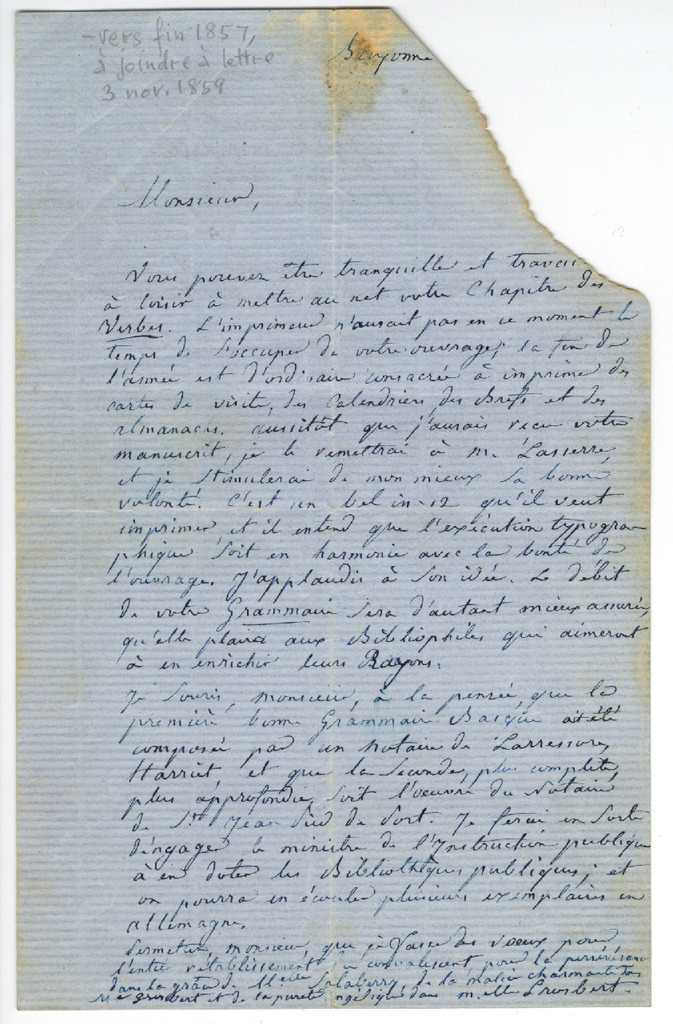 -vers fin 1857,
à joindre à lettre
3 nov. 1859
Bayonne
Monsieur,
Vous pouvez être tranquille et
à loisir à mettre au net votre Chapitre des
Verbes. L'imprimeur n'aurait pas en ce moment le
temps de s'occuper de votre ouvrage; la fin de
l'année est d'ordinaire consacrée à imprimer des
cartes de visite, des Calendriers, des Brefs et des
almanacs. Aussitôt que j'aurais reçu votre
manuscrit, je le remettrai à M. Lasserre,
et je stimulerai de mon mieux sa bonne
volonté. C'est un bel in-12 qu'il veut
imprimer et il entend que l'exécution typogra
phique soit en harmonie avec la bonté de
l'ouvrage. J'applaudis à son idée. Le débit
de votre Grammaire sera d'autant mieux assuré,
qu'elle plaira aux Bibliophiles qui aimeront
à en enrichir leurs Rayons.
Je souris, monsieur, à la pensée que la
première bonne Grammaire Basque a été
composée par un notaire de Larressore,
Harriet, et que la seconde, plus complète,
plus approfondie, soit l'oeuvre du Notaire
de St Jean Pied de Port. Je ferai en sorte
d'engager le ministre de l'Instruction publique
à en doter les Bibliothèques publiques; et
on pourra en écouler plusieurs exemplaires en
allemagne.
Permettez, monsieur, que je fasse des voeux pour
l'entier rétablissement convalescent, pour la persévérance
dans la grâce de Melle Salaberry, de la malice charmante
et de la pureté angélique dans m.elle